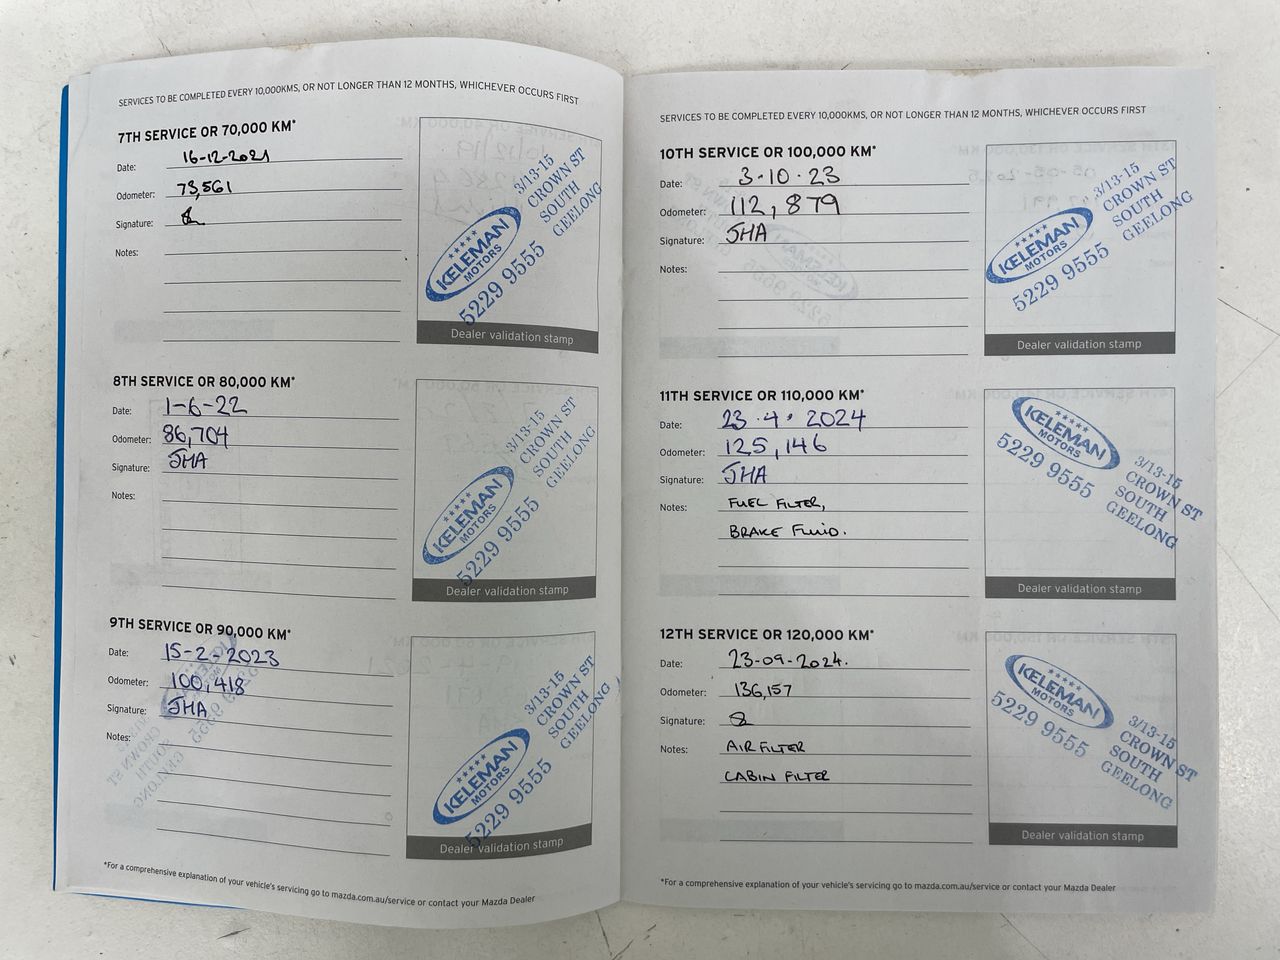 SERVICES TO BE COMPLETED EVERY 10,000KMS, OR NOT LONGER THAN 12 MONTHS, WHICHEVER OCCURS FIRST
7TH SERVICE OR 70,000 KM*
Date: 16-12-2021
Odometer: 73,561
Signature:
Notes:
KELEMAN
MOTORS
5229 9555
3/13-15
CROWN ST
SOUTH
GEELONG
Dealer validation stamp
8TH SERVICE OR 80,000 KM*
Date: 1-6-22
Odometer: 86,704
Signature: JHA
Notes:
KELEMAN
MOTORS
5229 9555
3/13-15
CROWN ST
SOUTH
GEELONG
Dealer validation stamp
9TH SERVICE OR 90,000 KM*
Date: 15-2-2023
Odometer: 100,418
Signature: JHA
Notes:
KELEMAN
MOTORS
5229 9555
3/13-15
CROWN ST
SOUTH
GEELONG
Dealer validation stamp
*For a comprehensive explanation of your vehicle's servicing go to mazda.com.au/service or contact your Mazda Dealer
SERVICES TO BE COMPLETED EVERY 10,000KMS, OR NOT LONGER THAN 12 MONTHS, WHICHEVER OCCURS FIRST
10TH SERVICE OR 100,000 KM*
Date: 3·10·23
Odometer: 112,879
Signature: JHA
Notes:
KELEMAN
MOTORS
5229 9555
3/13-15
CROWN ST
SOUTH
GEELONG
Dealer validation stamp
11TH SERVICE OR 110,000 KM*
Date: 23·4·2024
Odometer: 125,146
Signature: JHA
Notes: FUEL FILTER,
BRAKE FLUID.
KELEMAN
MOTORS
5229 9555
3/13-15
CROWN ST
SOUTH
GEELONG
Dealer validation stamp
12TH SERVICE OR 120,000 KM*
Date: 23-09-2024.
Odometer: 136,157
Signature:
Notes: AIR FILTER
CABIN FILTER
KELEMAN
MOTORS
5229 9555
3/13-15
CROWN ST
SOUTH
GEELONG
Dealer validation stamp
*For a comprehensive explanation of your vehicle's servicing go to mazda.com.au/service or contact your Mazda Dealer